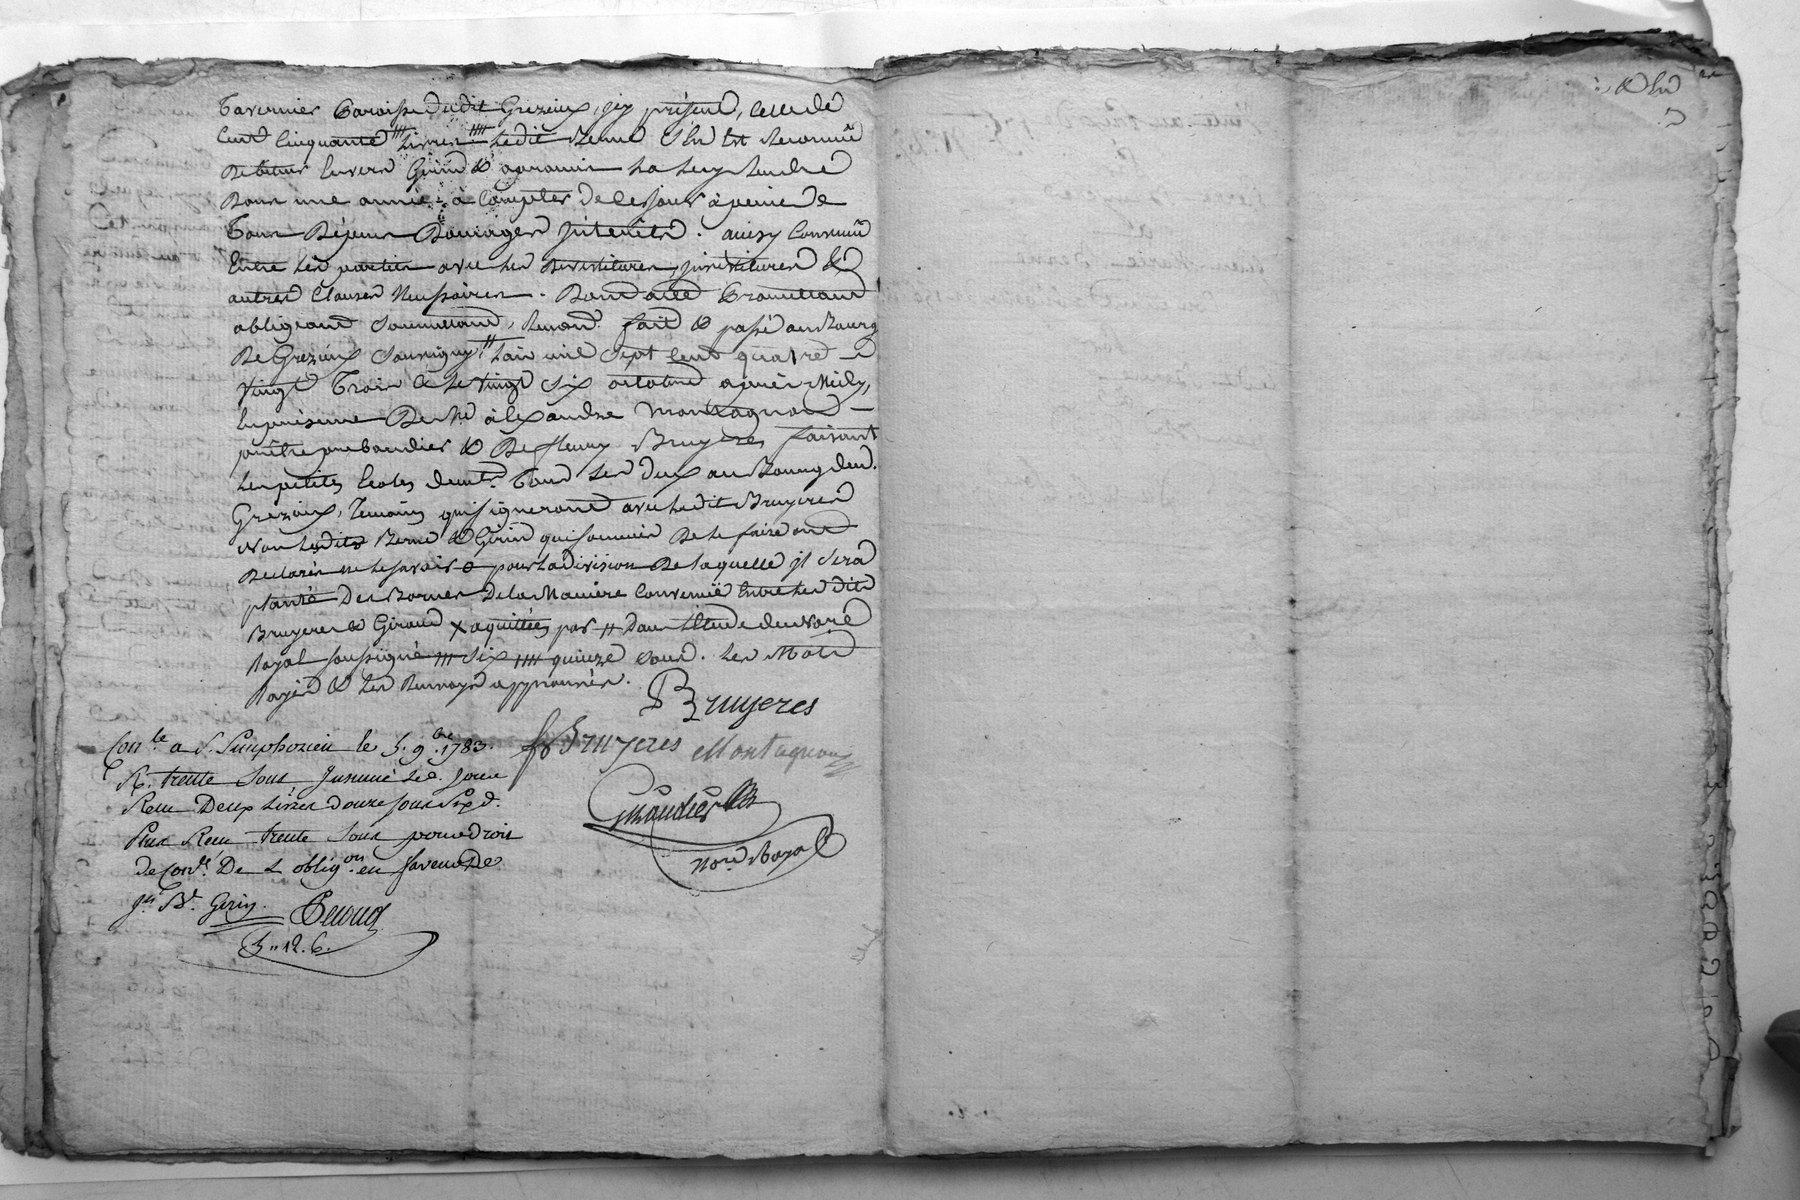 Tavernier Paroisse dudit Grezieux, icy présent, celle de
cent cinquante livres ledit Berne s'en est Reconnu
Debiteur Envers Gerin & apromis La luy Rendre
Dans une année à Compter de ce jour à peine de
Tous Dépens Domages jnterêts. ainsy Convenu
Entre les parties avec les Devestitures, jnvestitures &
autres Clauses Necessaires. Dont acte Promettant
obligeant Soumettant, Renonç. fait & passé au Bourg
De Grezieux Souvigny L'an mil sept cent quatre
vingt Trois & le vingt six octobre après Midy,
En présence De Mre aléxandre Montagnon
prêtre prebandier & De fleury Bruyeres faisant
Les petites Ecoles demt. Tous Les deux au Bourg dud.
Grezieux, Temoins qui signeront avec ledit Bruyeres
Non lesdits Berne & Gerin qui sommés De le faire ont
Declarés ne le savoir pour la division De laquelle jl sera
planté Des Bornes De la Maniere Convenuë Entre les dits
Bruyeres & Giraud x aquittées par Dans L'Etude du no.re
Royal soussigné six quinze sous. Les Mots
Rayés & les Renvoys approuvés.
Bruyeres
f Bruyeres Montagnon
no.re Royal
Con.le a S. Simphorien le 5. 9bre. 1783.
R. trente Sous Jnsinué led. jour
Reçu Deux Livres douze sous Six d.
Plus Reçu trente Sous pour droit
de Con.le De L'oblig.on en faveur de
Jn. Bt. Gerin.
5 " 12. 6.